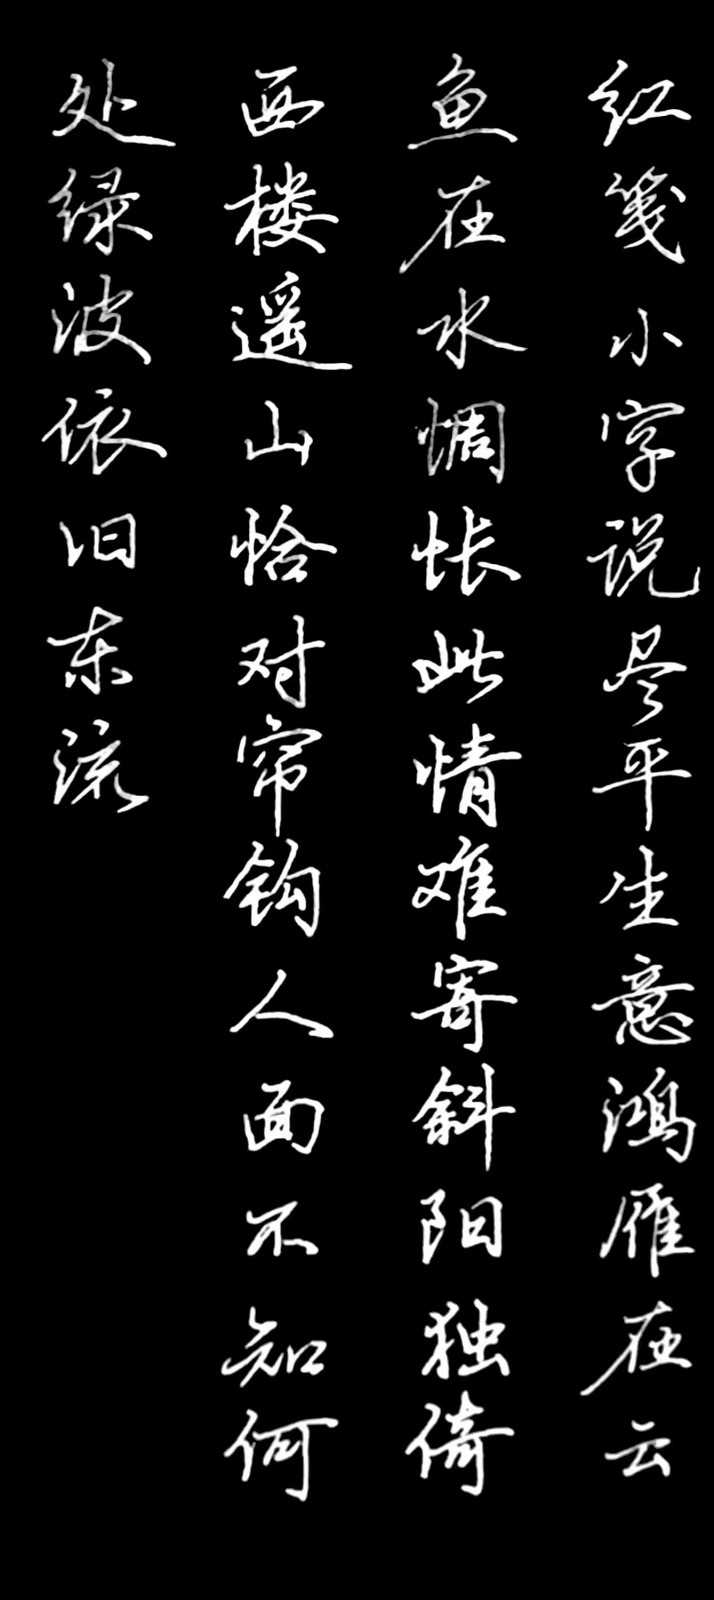 红笺小字说尽平生意鸿雁在云
鱼在水惆怅此情难寄斜阳独倚
西楼遥山恰对帘钩人面不知何
处绿波依旧东流